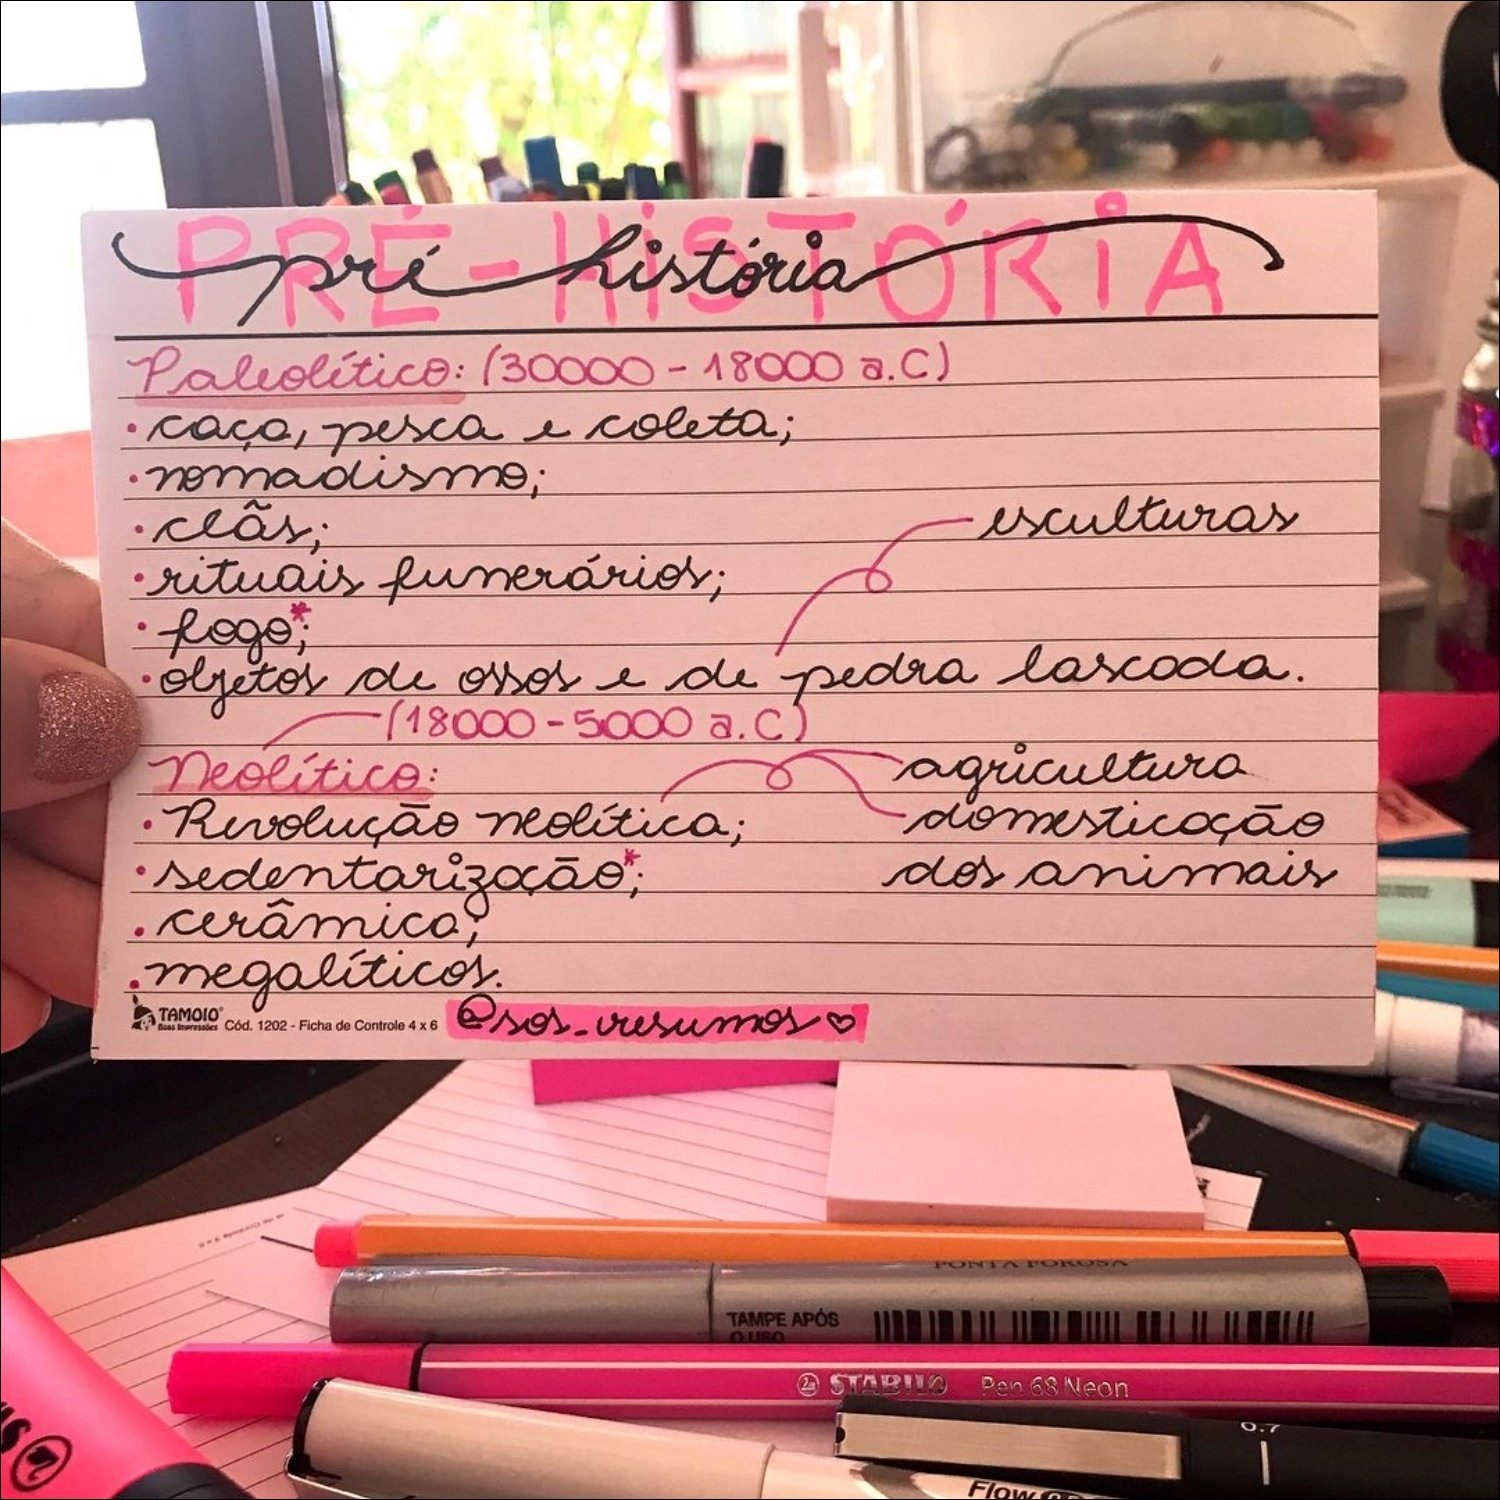 PRÉ-HiSTÓRiA
pré história
Paleolítico: (30000 - 18000 a.C)
• caça, pesca e coleta;
• nomadismo;
• clãs;
esculturas
• rituais funerários;
• fogo*;
• objetos de ossos e de pedra lascada.
(18000 - 5000 a.C)
Neolítico:
agricultura
• Revolução neolítica;
domesticação
• sedentarização*;
dos animais
• cerâmica;
• megalíticos.
TAMOIO
Boas Impressões
Cód. 1202 - Ficha de Controle 4 x 6
@sos_resumos♡
PONTA POROSA
TAMPE APÓS
O USO
STABILO Pen 68 Neon
0.7
Flow